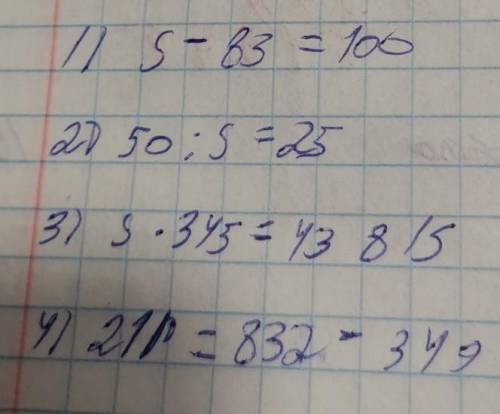 1) S - 83 = 100
2) 50 : S = 25
3) S · 345 = 43 815
4) 21p = 832 - 349